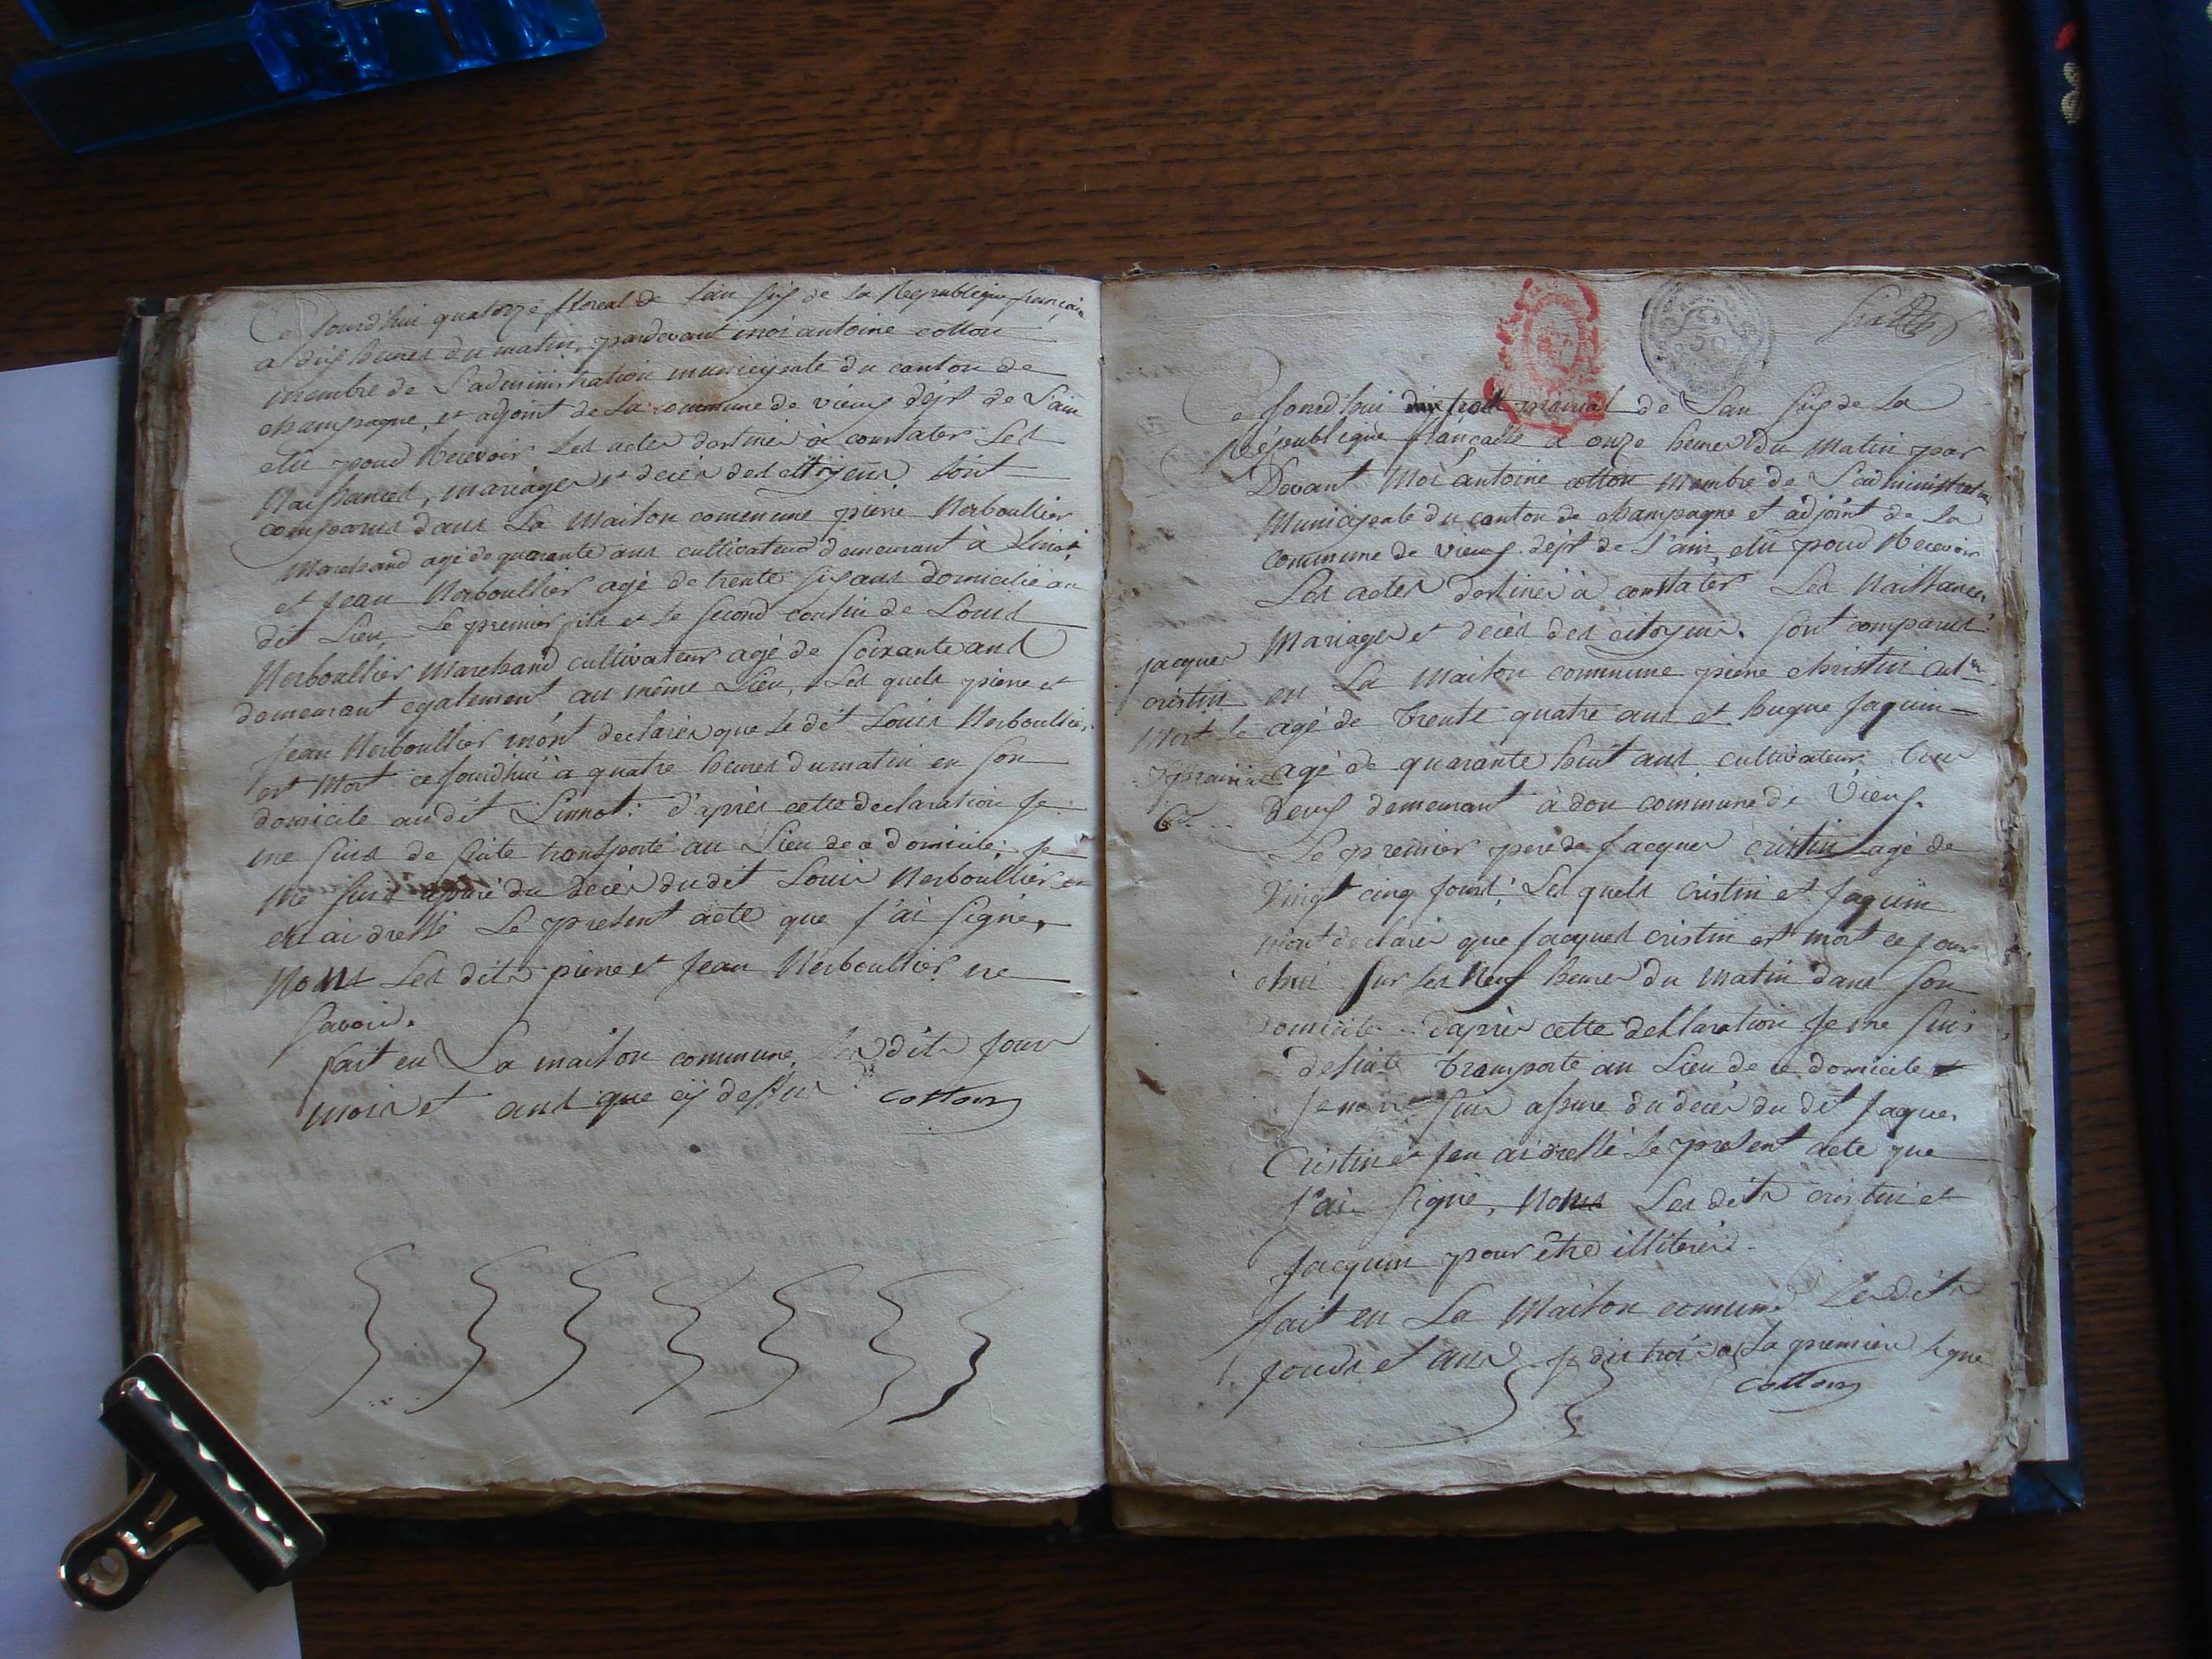 Ce Jourd'hui quatorze floreal de l'an six de la Republique françai
a dix heures du matin, pardevant moi antoine cotton
membre de l'administration municipale du canton de
champagne, et adjoint de la commune de vieux dépt de l'ain
elu pour Recevoir les actes destinés à constater les
Naissances, mariages et décès des citoyens sont
comparus dans la Maison commune pierre Nerboullier
Marchand agé de quarante ans cultivateur demeurant à Linot
et Jean Nerboullier agé de trente six ans domicilié au
dit Lieu, Le premier fils et le second cousin de Louis
Nerboullier Marchand cultivateur agé de soixante ans
demeurant egalement au même Lieu, Les quels pierre et
Jean Nerboullier m'ont declarés que le dit Louis Nerboullier
est Mort ce jourd'hui a quatre heures du matin en son
domicile au dit Linnot: d'après cette declaration Je
me suis de suite transporté au Lieu de ce domicile, je
me suis assuré du Decès du dit Louis Nerboullier et
en ai dressé Le present acte que j'ai signé,
Nons Les dits pierre et Jean Nerboullier ne
savoir.
fait en La maison commune, Les dits jour
mois et ans que cy dessus cotton
Ce jourd'hui trois prairial de L'an six de La
République françaisse a onze heures du Matin par
Devant Moi antoine cotton Membre de L'administration
Municipale du canton de champagne et adjoint de La
commune de vieux dépt de L'ain, elu pour Recevoir
Les actes destinés à constater Les Naissances
Mariages et decès des citoyens. sont comparus
en La Maison commune pierre christin cultr
agé de trente quatre ans et hugue Jaquin
agé de quarante huit ans, cultivateurs tous
Deux demeurant à don commune de Vieux.
Le premier pere de Jacques cristin agé de
Vingt cinq jours; Les quels Cristin et Jaquin
m'ont declarés que Jacques cristin est mort ce jour
d'hui sur les Neuf heures du Matin dans son
domicile. d'après cette declaration Je me suis
de suite transporté au Lieu de ce domicile et
je me suis assure du decès du dit Jaques
Cristin et j'en ai dressé Le present acte que
J'ai signé, Nons Les dits cristin et
Jacquin pour être illiterés.
fait en La Maison comune Les dits
jours et ans je dis trois a La premiere Ligne
cotton
jacques
cristin
Mort le
prairial